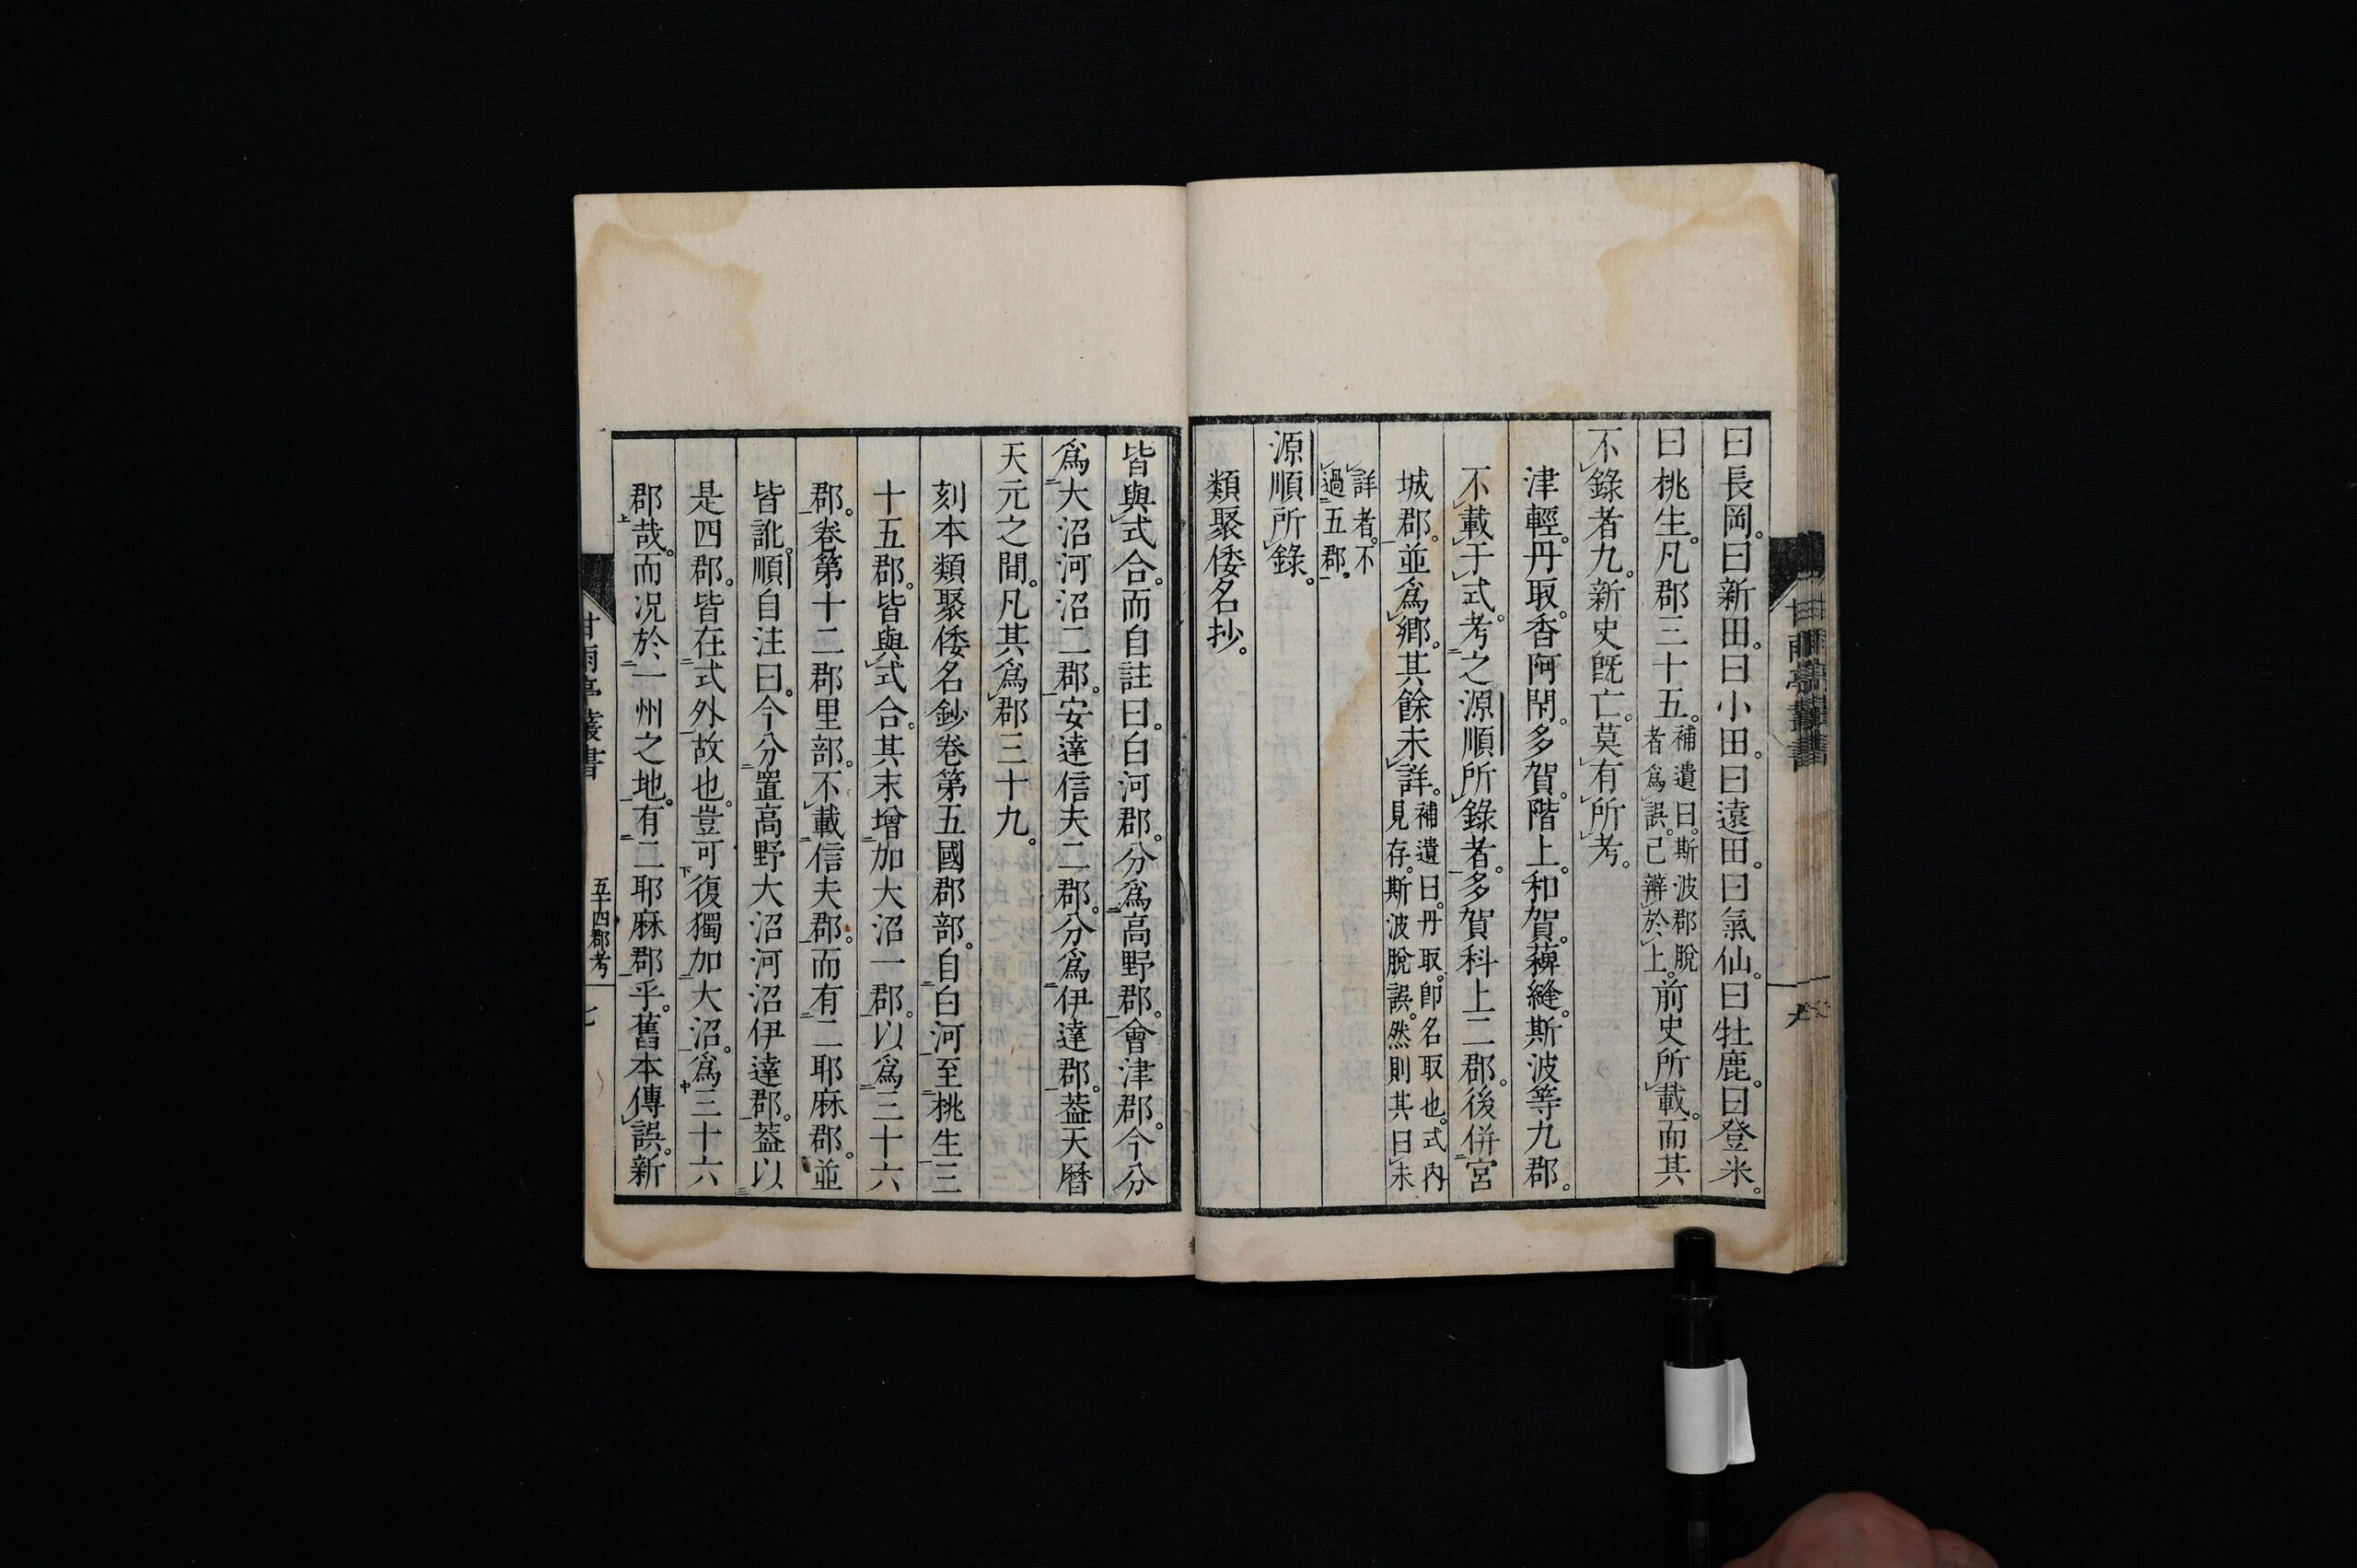 曰長岡。曰新田。曰小田。曰遠田。曰氣仙。曰牡鹿。曰登米。
曰桃生。凡郡三十五。補遺曰。斯波郡脫者爲誤。已辨於上。前史所載。而其
不錄者九。新史既亡。莫有所考。
津輕。丹取。香阿。閇。多賀。階上。和賀。薭縫。斯波等九郡。
不載于式。考之源順所錄者。多賀科上二郡。後併宮
城郡。並爲鄉。其餘未詳。補遺曰。丹取。卽名取也。式內見存。斯波脫誤。然則其曰未
詳者。不過五郡。
源順所錄。
類聚倭名抄。
皆與式合。而自註曰。白河郡。分爲高野郡。會津郡。今分
爲大沼河沼二郡。安達信夫二郡。分爲伊達郡。葢天曆
天元之間。凡其爲郡三十九。
刻本類聚倭名鈔卷第五國郡部。自白河至桃生三
十五郡。皆與式合。其末增加大沼一郡。以爲三十六
郡。卷第十二郡里部。不載信夫郡。而有二耶麻郡。並
皆訛。順自注曰。今分置高野大沼河沼伊達郡。葢以
是四郡。皆在式外故也。豈可復獨加大沼。爲三十六
郡哉。而况於一州之地。有二耶麻郡乎。舊本傳誤。新
甘雨亭叢書
五十四郡考